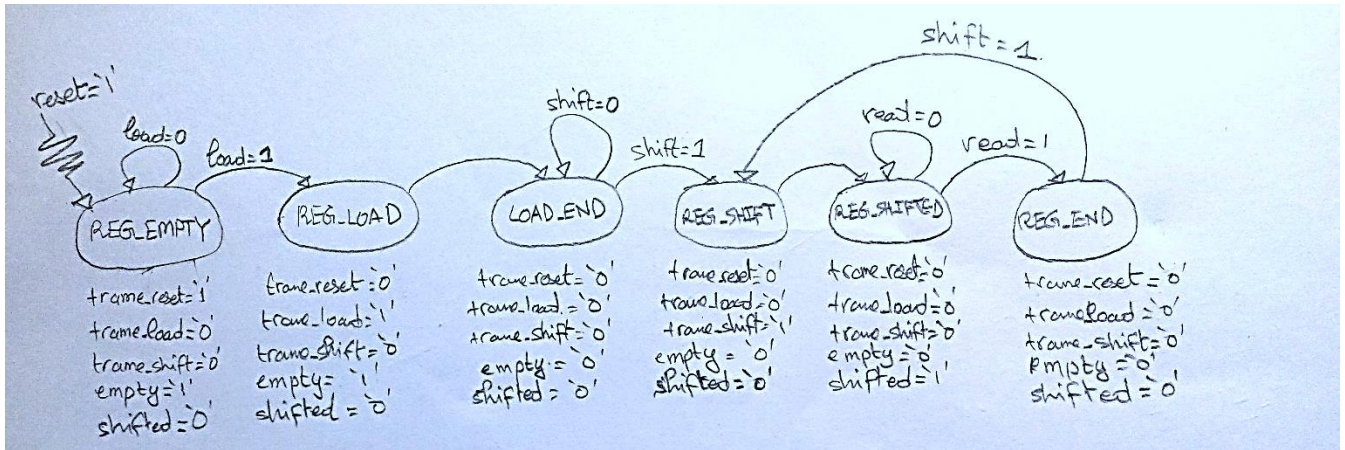 shift=1
reset='1'
load=0
load=1
shift=0
shift=1
read=0
read=1
REG_EMPTY
REG_LOAD
LOAD_END
REG_SHIFT
REG_SHIFTED
REG_END
trame_reset='1'
trame_load='0'
trame_shift='0'
empty='1'
shifted='0'
trame_reset='0'
trame_load='1'
trame_shift='0'
empty='1'
shifted='0'
trame_reset='0'
trame_load='0'
trame_shift='0'
empty='0'
shifted='0'
trame_reset='0'
trame_load='0'
trame_shift='1'
empty='0'
shifted='0'
trame_reset='0'
trame_load='0'
trame_shift='0'
empty='0'
shifted='1'
trame_reset='0'
trame_load='0'
trame_shift='0'
empty='0'
shifted='0'